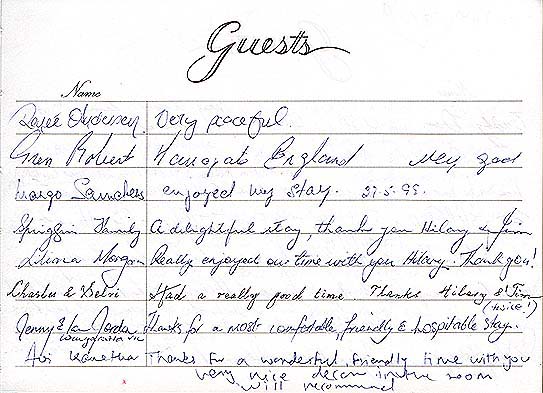 Guests
Name
Renée Andersen Very peaceful.
Gren Robert Harrogate England Very good
Margo Saunders enjoyed my stay. 27.5.95.
Spriggin Family A delightful stay, thank you Hilary & Jim
Liuora Morgan Really enjoyed our time with you Hilary. Thank you!
Charlie & Had a really good time. Thanks Hilary & Jim
(twice!)
Jenny & Ian Jordan Thanks for a most comfortable, friendly & hospitable stay.
VIC
Avi Thanks for a wonderful, friendly time with you
very nice decor in the room
will recommend